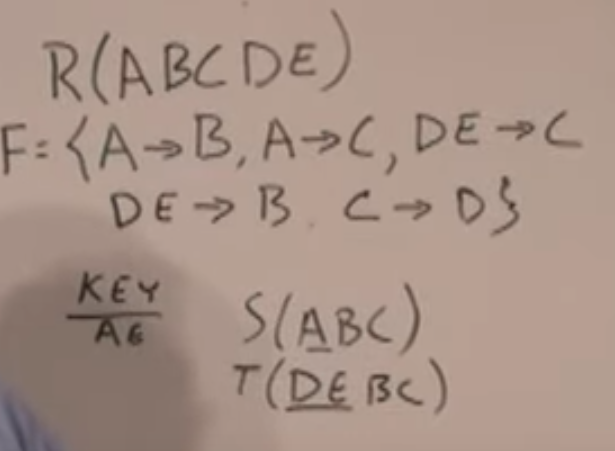 R(ABCDE)
F={A→B, A→C, DE→C
DE→B. C→D}
KEY
AE
S(ABC)
T(DEBC)